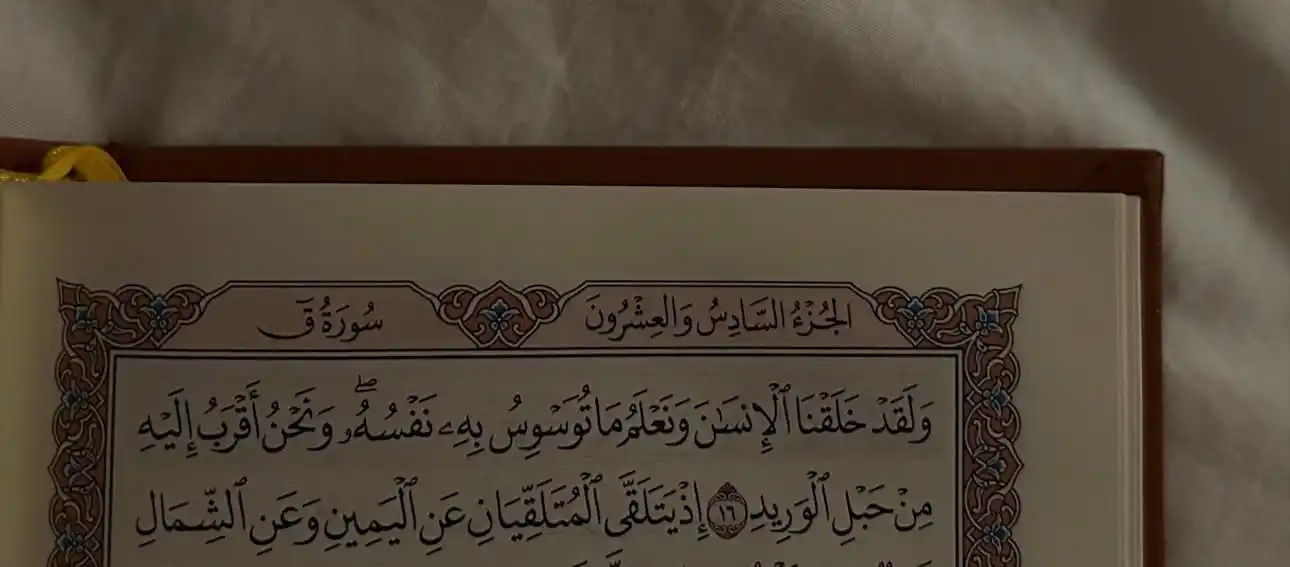 الجُزْءُ السَّادِسُ وَالعِشْرُونَ
سُورَةُ قٓ
وَلَقَدْ خَلَقْنَا ٱلْإِنسَٰنَ وَنَعْلَمُ مَا تُوَسْوِسُ بِهِۦ نَفْسُهُۥۖ وَنَحْنُ أَقْرَبُ إِلَيْهِ
مِنْ حَبْلِ ٱلْوَرِيدِ ١٦ إِذْ يَتَلَقَّى ٱلْمُتَلَقِّيَانِ عَنِ ٱلْيَمِينِ وَعَنِ ٱلشِّمَالِ